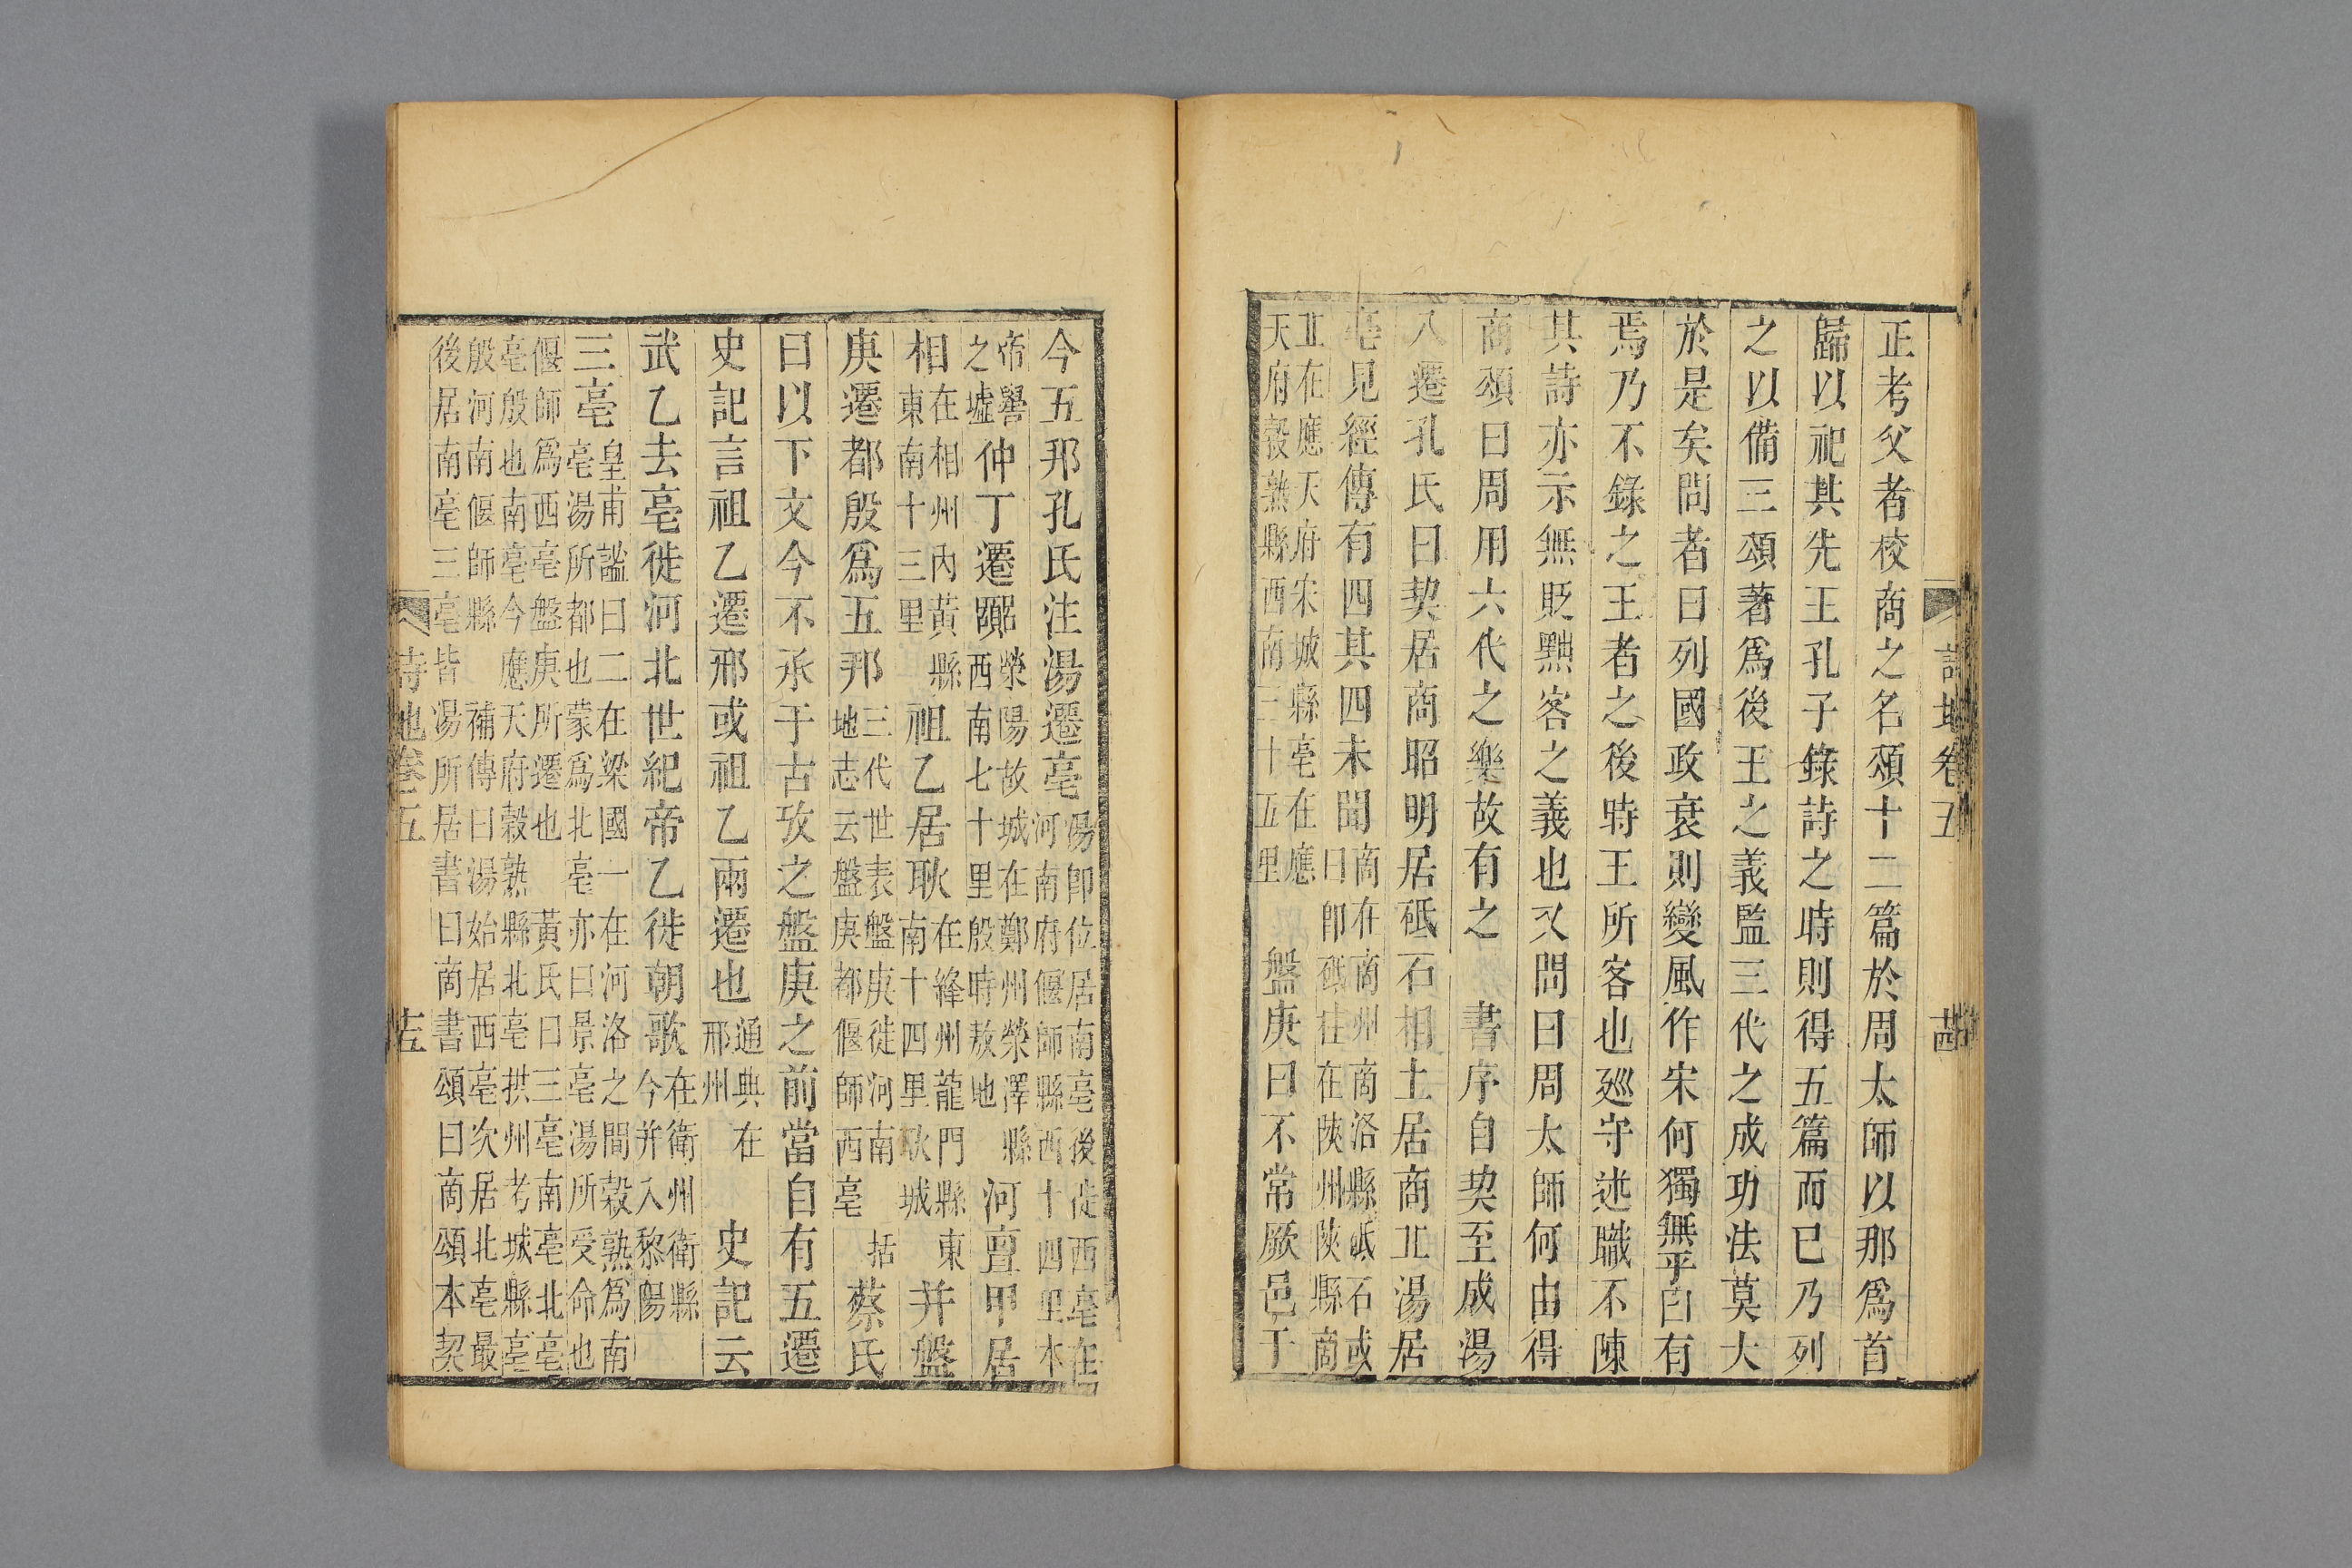 詩地卷五 十四
正考父者校商之名頌十二篇於周太師以那爲首
歸以祀其先王孔子錄詩之時則得五篇而已乃列
之以備三頌著爲後王之義監三代之成功法莫大
於是矣問者曰列國政衰則變風作宋何獨無乎曰有
焉乃不錄之王者之後時王所客也廵守述職不陳
其詩亦示無貶黜客之義也又問曰周太師何由得
商頌曰周用六代之樂故有之 書序自契至成湯
八遷孔氏曰契居商昭明居砥石相土居商丘湯居
亳見經傳有四其四未聞 商在商州商洛縣砥石或 曰卽砥柱在陝州陝縣商
丘在應天府宋城縣亳在應 天府穀熟縣西南三十五里 盤庚曰不常厥邑于
今五邦孔氏注湯遷亳 湯卽位居南亳後徙西亳在 河南府偃師縣西十四里本
帝嚳 之墟 仲丁遷嚻 滎陽故城在鄭州滎澤縣 西南七十里殷時敖地 河亶甲居
相 在相州內黃縣 東南十三里 祖乙居耿 在絳州龍門縣東 南十四里耿城 幷盤
庚遷都殷爲五邦 三代世表盤庚徙河南 括 地志云盤庚都偃師西亳 蔡氏
曰以下文今不承于古攷之盤庚之前當自有五遷
史記言祖乙遷邢或祖乙兩遷也 通典在 邢州 史記云
武乙去亳徙河北世紀帝乙徙朝歌 在衛州衛縣 今幷入黎陽
三亳 皇甫謐曰二在梁國一在河洛之間穀熟爲南 亳湯所都也蒙爲北亳亦曰景亳湯所受命也
偃師爲西亳盤庚所遷也 黃氏曰三亳南亳北亳 亳殷也南亳今應天府穀熟縣北亳拱州考城縣亳
殷河南偃師縣 補傳曰湯始居西亳次居北亳最 後居南亳三亳皆湯所居書曰商書頌曰商頌本契
詩地卷五 十五